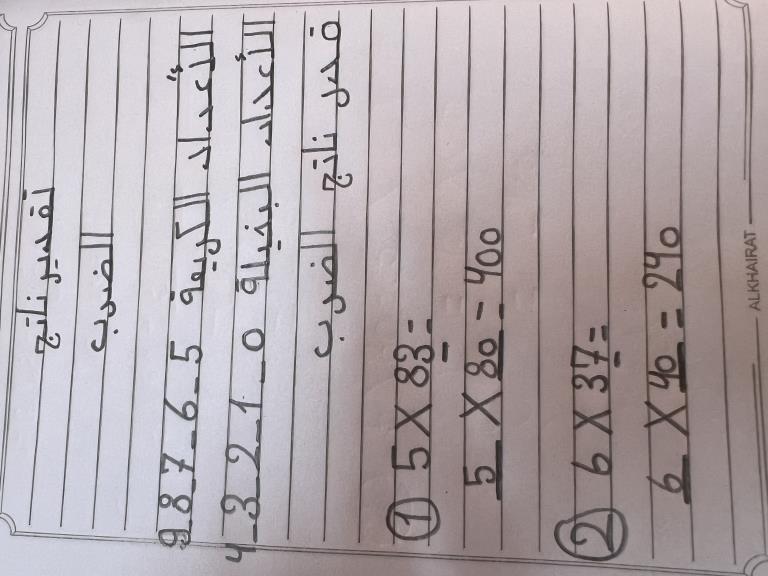 تقدير ناتج
الضرب
الأعداد الكريمة 5 - 6 - 7 - 8 - 9
الأعداد البخيلة 0 - 1 - 2 - 3 - 4
قدر ناتج الضرب
① 5 X 83 =
5 X 80 = 400
② 6 X 37 =
6 X 40 = 240
ALKHAIRAT